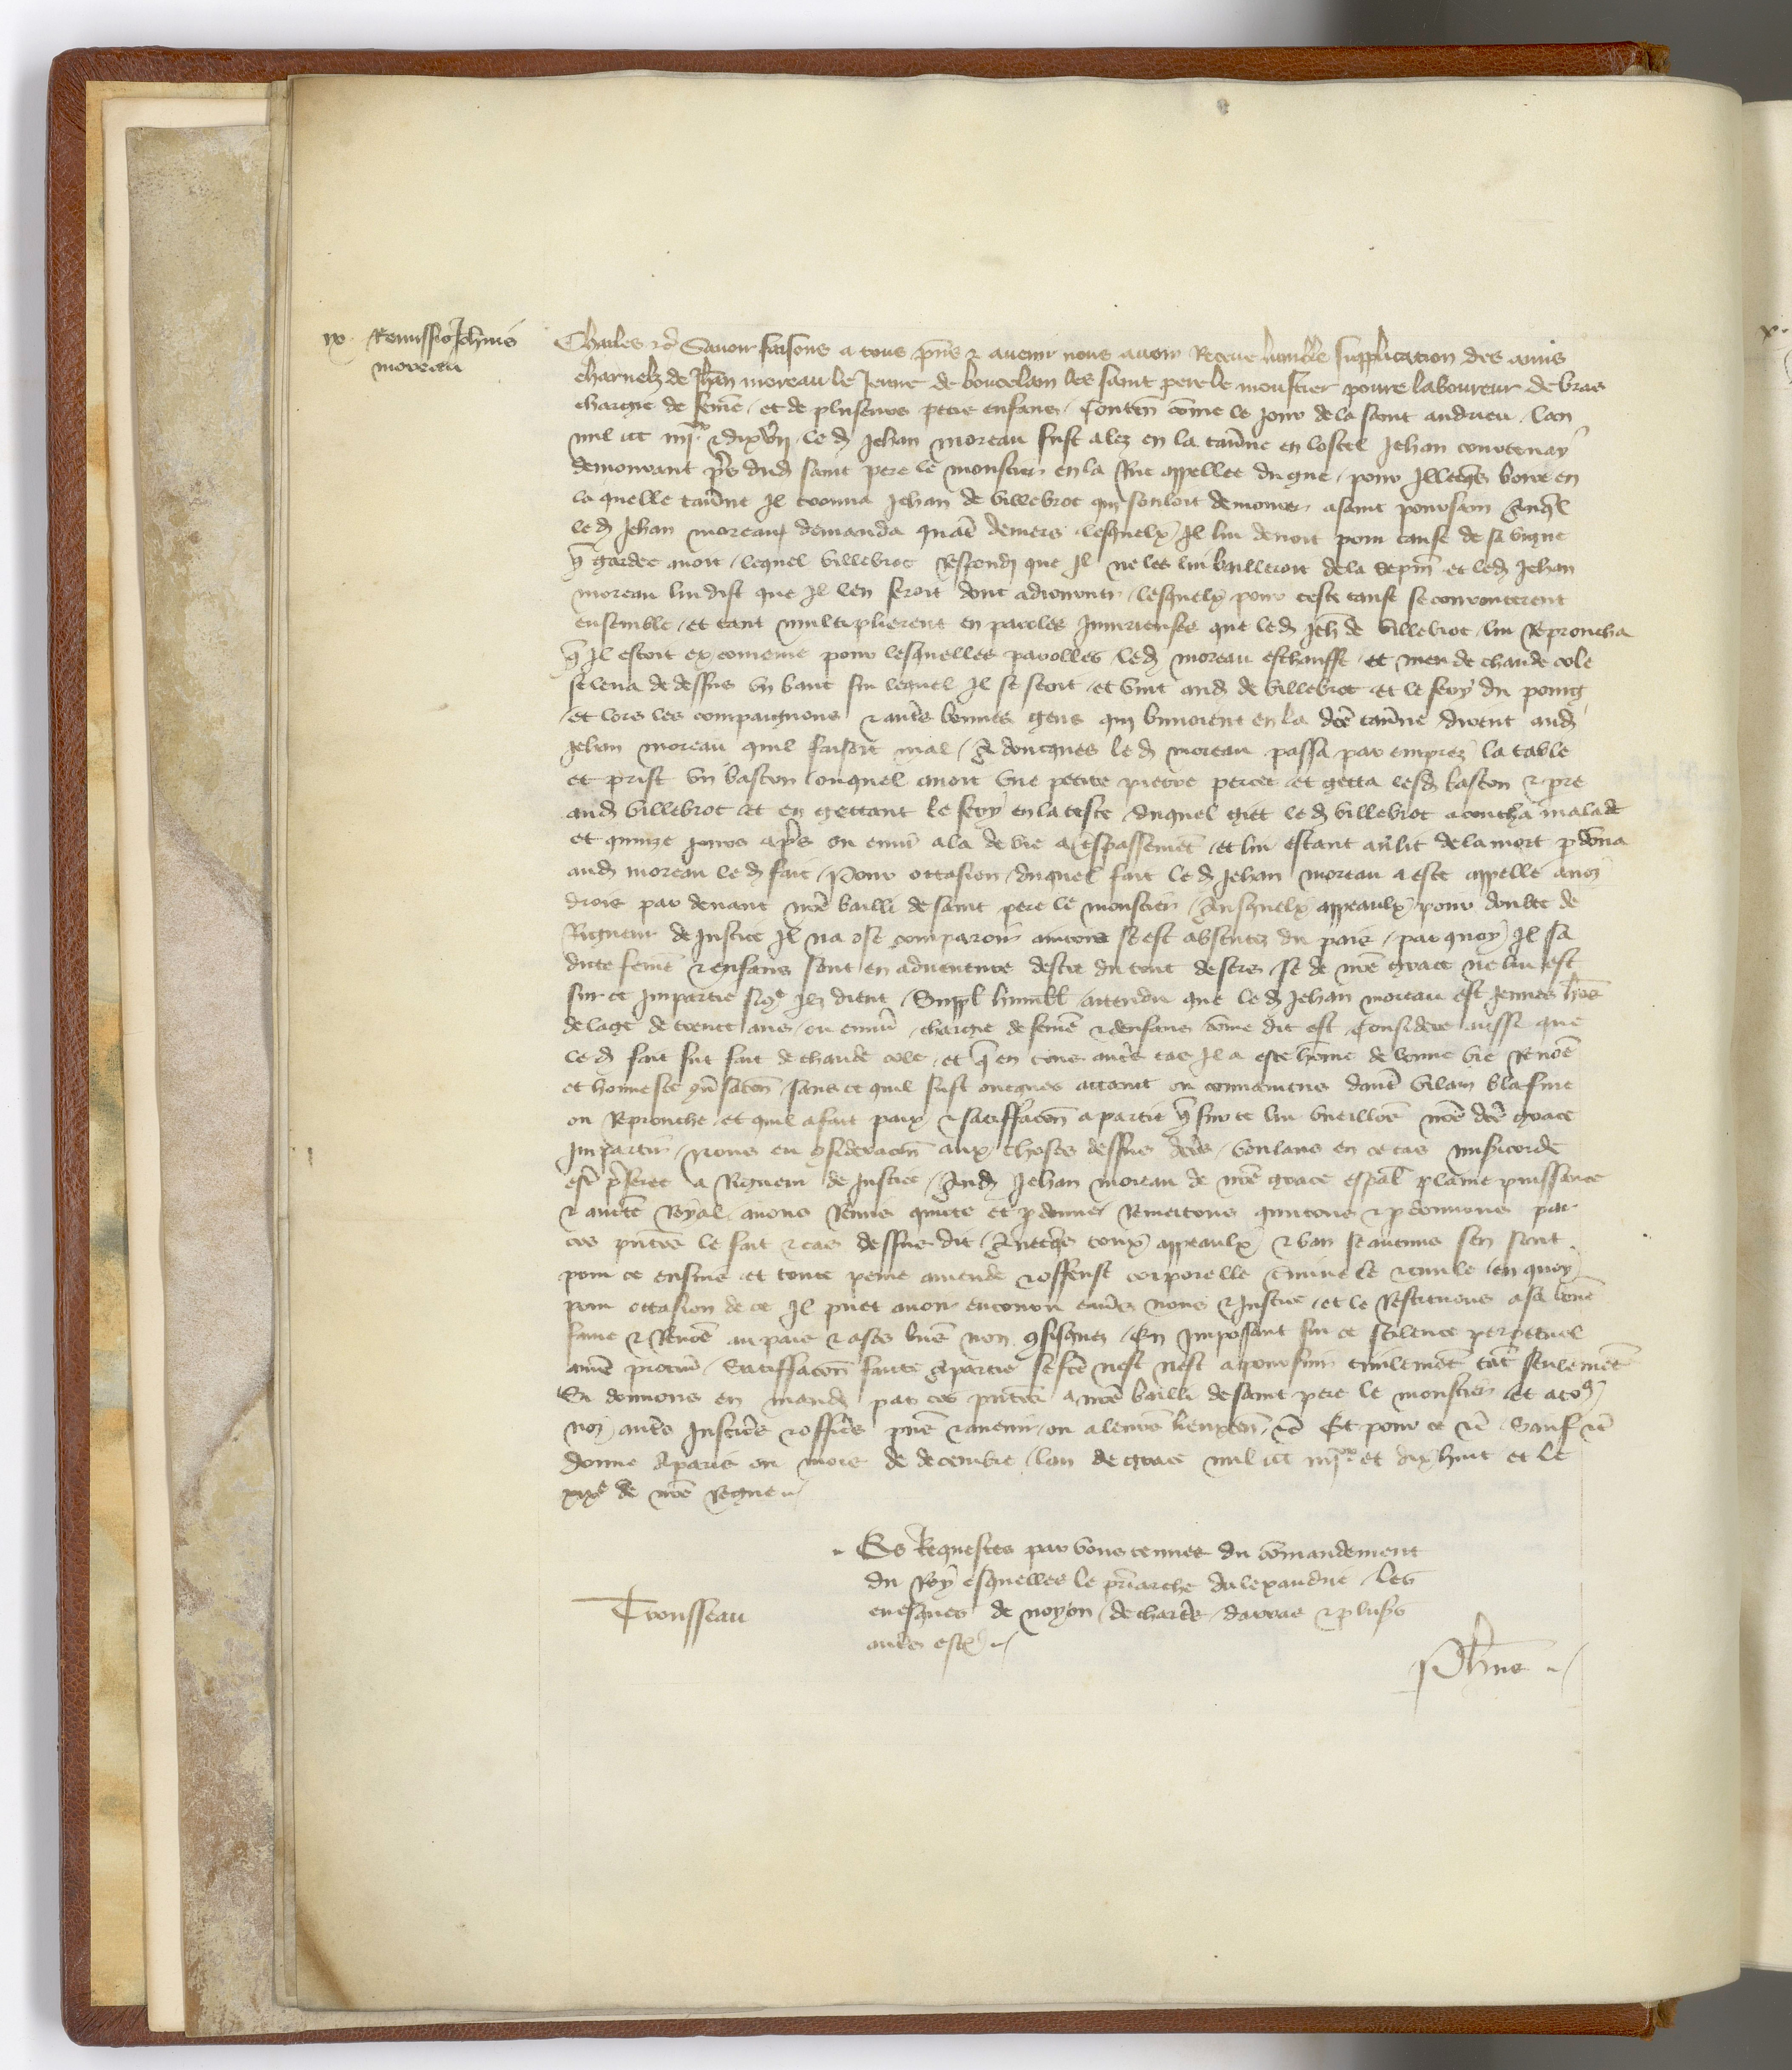 ix. Remissio Johnis
moreau
Charles etc Savoir faisons a tous pns & avenir nous avoir Receue humble supplication des amis
charnelz de Jehan moreau le Jeune de boucelan les saint pere le moustier povre laboureur de bras
chargié de feme et de plusieurs petis enfans Conten come le jour de la saint andrieu lan
mil ccc iiijxx & dix vij le d Jehan moreau fust alez en la taverne en lostel Jehan courtenay
demourant pres dud saint pere le moustier en la Rue appellee du gue pour illecqs boire en
la quelle taverne Il trouva Jehan de Villebroc qui souloit demourer a saint poursain Auql
le d Jehan moreau demanda quate deniers lesquelx Il lui devoit pour cause de sa vigne
q gardee avoit lequel villebroc Respondi que Il ne les lui bailleroit de la sepm et led Jehan
moreau lui dist que Il len feroit donc adjourner lesquelx pour ceste cause se courroucerent
ensemble et tant multiplierent en paroles Injurieuses que led Jeh de Villebroc lui Reproucha
q Il estoit excomenie pour lesquelles parolles led moreau eschauffe et meu de chaude cole
se leva de dessus un banc sur lequel Il se seoit et vint aud de Villebroc et le fery du poing
et lors les compaignons & autres bonnes gens qui buvoient en la dce taverne dirent aud
Jehan moreau quil faisoit mal Et doncques le d moreau passa par emprez la table
et prist un baston ouquel avoit une petite pierre percee et getta lesd baston & pre
aud Villebroc et en gettant le fery en la teste duquel giet le d Villebroc acoucha malade
et quinze jours apres ou environ ala de vie a trespassement et lui estant au lit de la mort pdona
aud moreau le d fait Pour occasion duquel fait le d Jehan moreau a este appelle a noz
drois par devant nre bailli de saint pere le moustier Ausquelx appeaulx pour doubte de
Rigueur de justice Il na ose comparoir aincois sest absentez du pais par quoy Il sa
dicte feme & enfans sont en adventure destre du tout desers se de nre grace ne lui est
sur ce Impartie sicoe Ilz dient Suppl humblt attendu que le d Jehan moreau est Jeunes hos
de laage de trente ans ou environ chargie de feme & denfans come dit est Considere aussi que
le d fait fut fait de chaude cole et q en tous autres cas Il a este home de bonne vie Renoe
et honneste conversacon sans ce quil fust oncques attaint ou convaincus dautre vilain blasme
ou Reprouche et quil a fait paix & satisfacon a partie q sur ce lui vueillons nre dce grace
Impartir Nous eu consideracon aux choses dessus dces voulans en ce cas misericorde
estre preferee a Rigueur de Justice Aud Jehan moreau de nre grace espal plaine puissance
& aucte Royal avons Remis quicte et pdonne Remettons quittons & pdonnons par
ces pntes le fait & cas dessus dit Avecqs touz appeaulx & ban se aucuns sen sont
pour ce ensuiz et toute peine amende & offense corporelle Criminele & civile en quoy
pour occasion de ce Il puet avoir encouru envers nous & justice et le Restituons a sa bone
fame & Renoe au pais & a ses biens non confisquez En Imposant sur ce scilence perpetuel
a nre procur Satisfacon faicte a partie se fce nest nest a poursuir civilement tat seulement
Si donnons en mandt par ces pntes a nre bailli de saint pere le moustier et a tos
noz autres Justiciers & officiers pns & avenir ou a leurs lieuxten etc Et pour ce etc Sauf etc
Donne a paris ou mois de decembre lan de grace mil ccc iiijxx et dix huit et le
xixe de nre Regne
Es Requestes par vous tenues du comandement
du Roy esquelles le pariarche dalexandrie les
evesques de noyon de chartres darras & plusrs
autres estiez
Trousseau